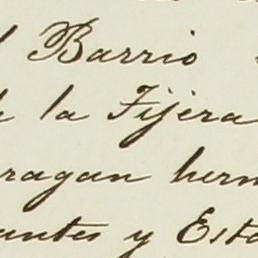 l Barrio
la Fijera
ragan herm
antes y Esta